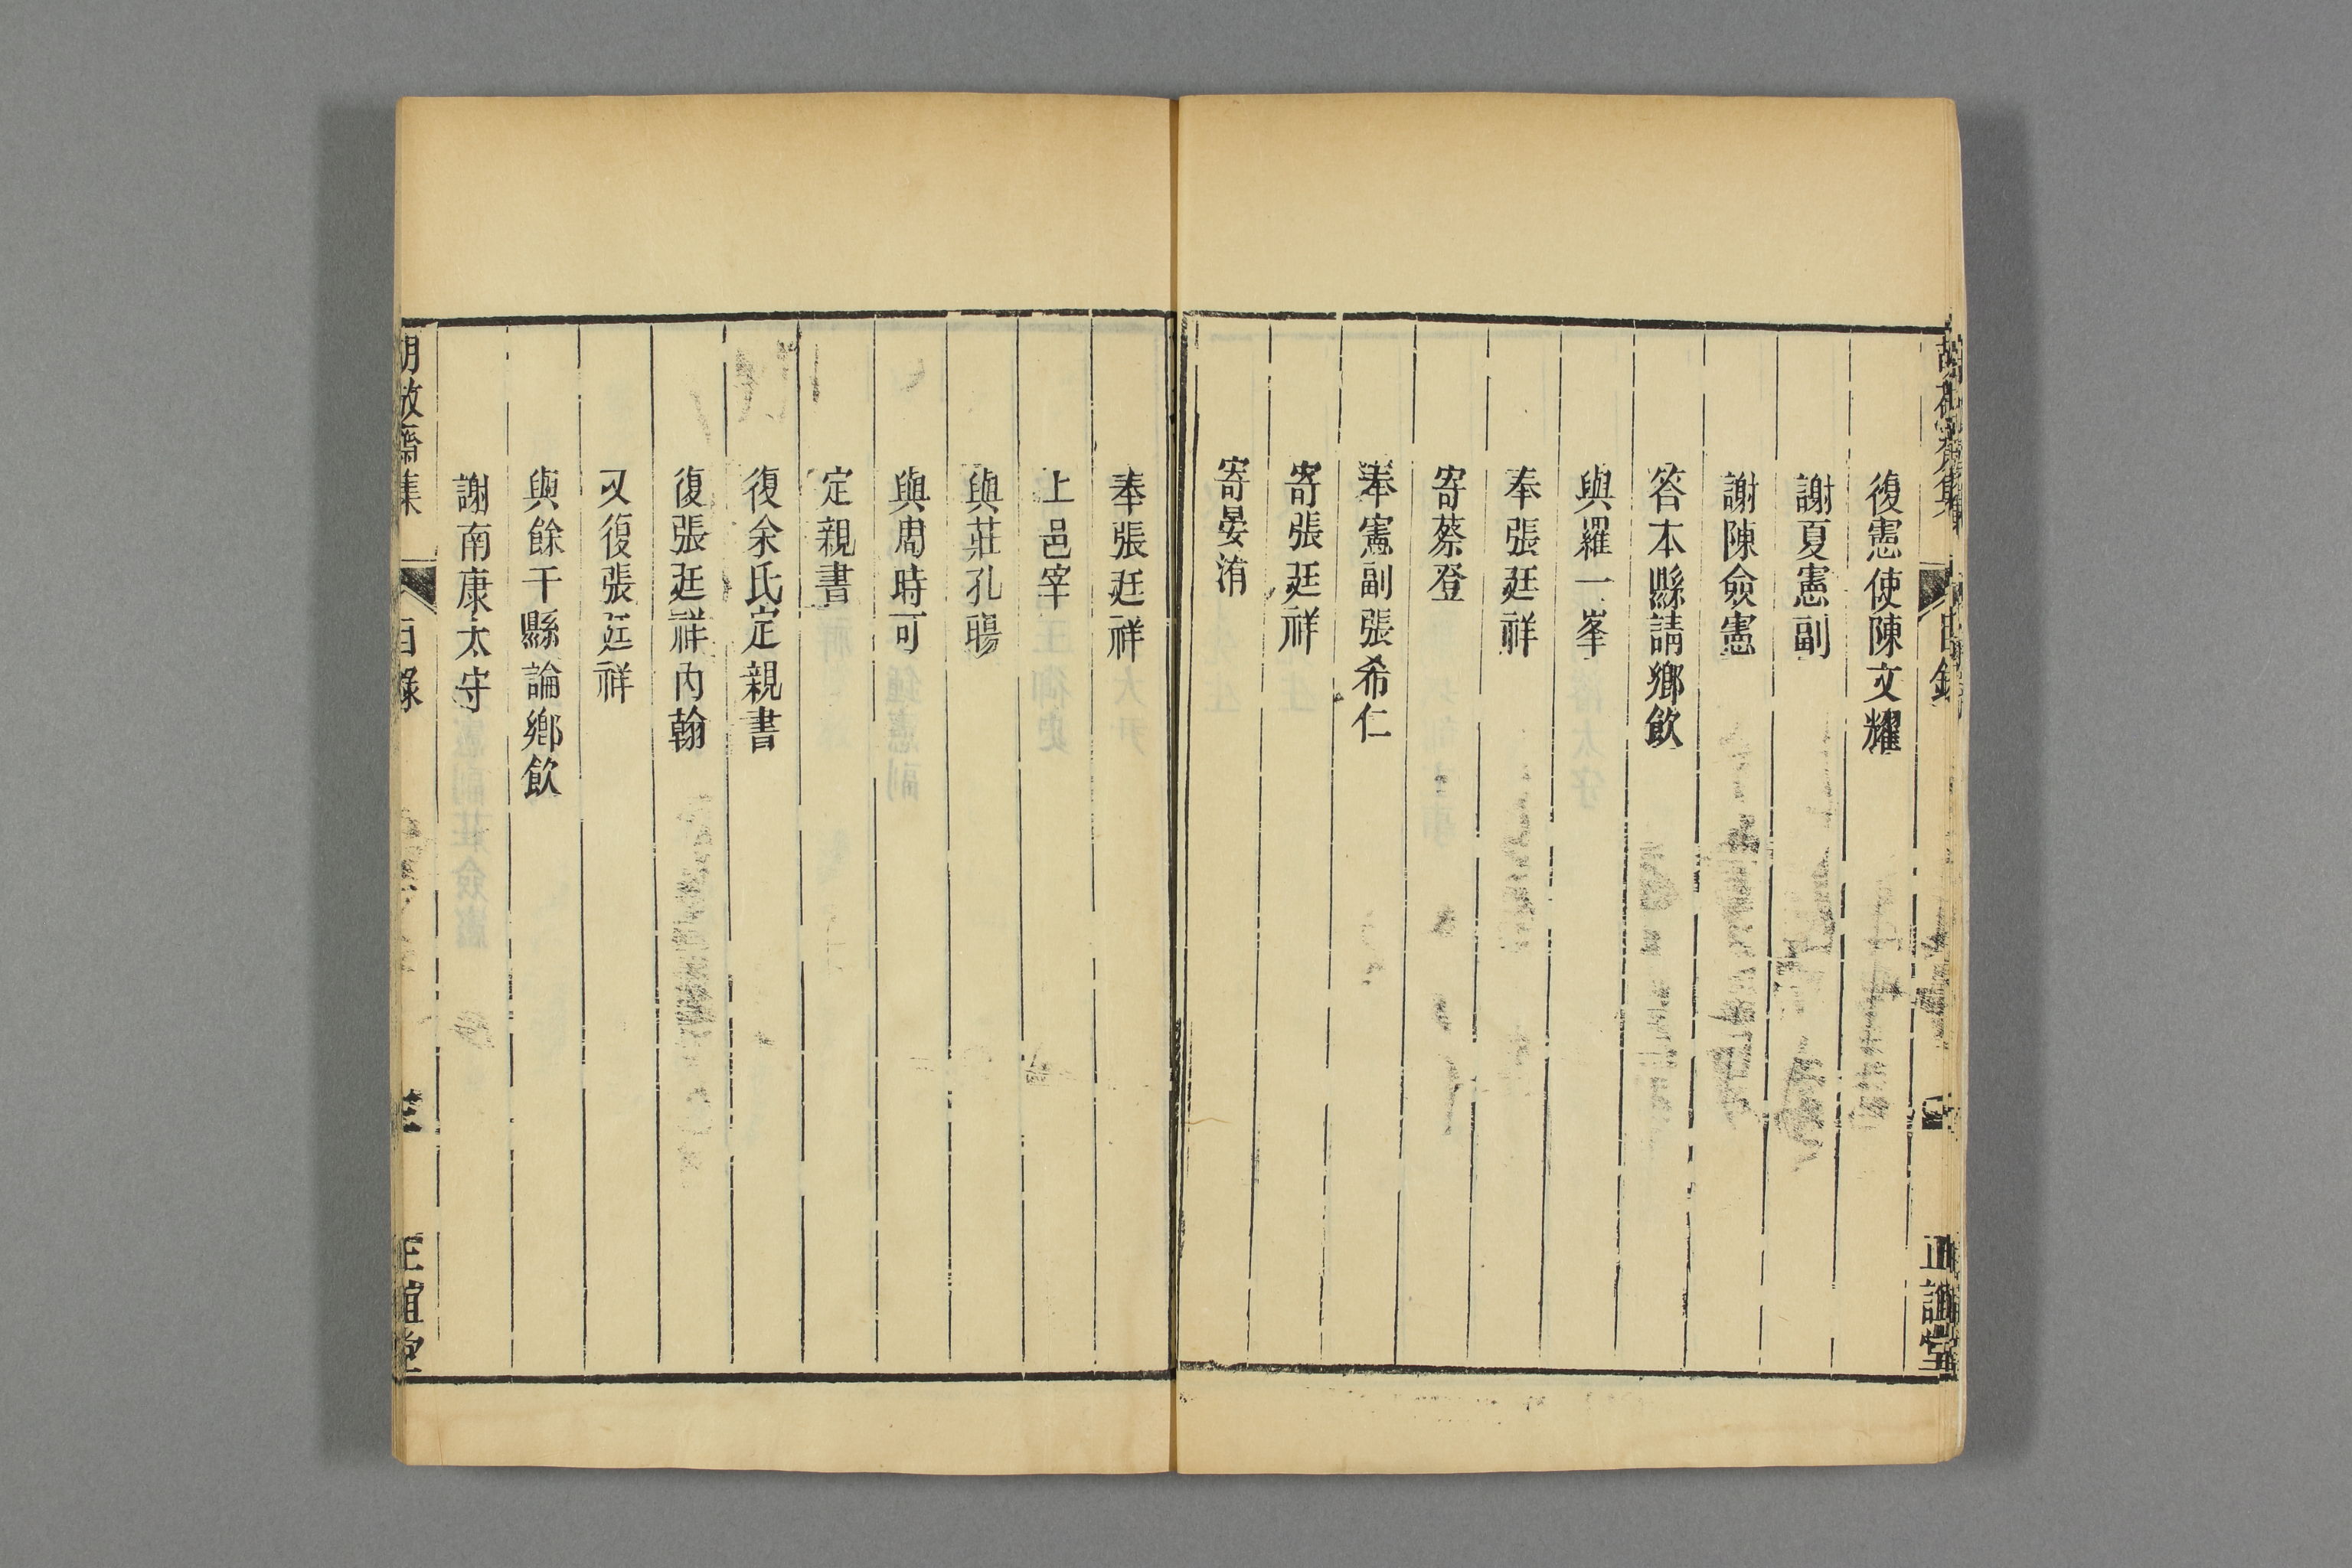 復憲使陳文耀
謝夏憲副
謝陳僉憲
答本縣請鄉飲
與羅一峯
奉張廷祥
寄蔡登
奉憲副張希仁
寄張廷祥
寄晏洧
奉張廷祥
上邑宰
與莊孔暘
與周時可
定親書
復余氏定親書
復張廷祥內翰
又復張廷祥
與餘干縣論鄉飲
謝南康太守
胡敬齋集
目錄
正誼堂